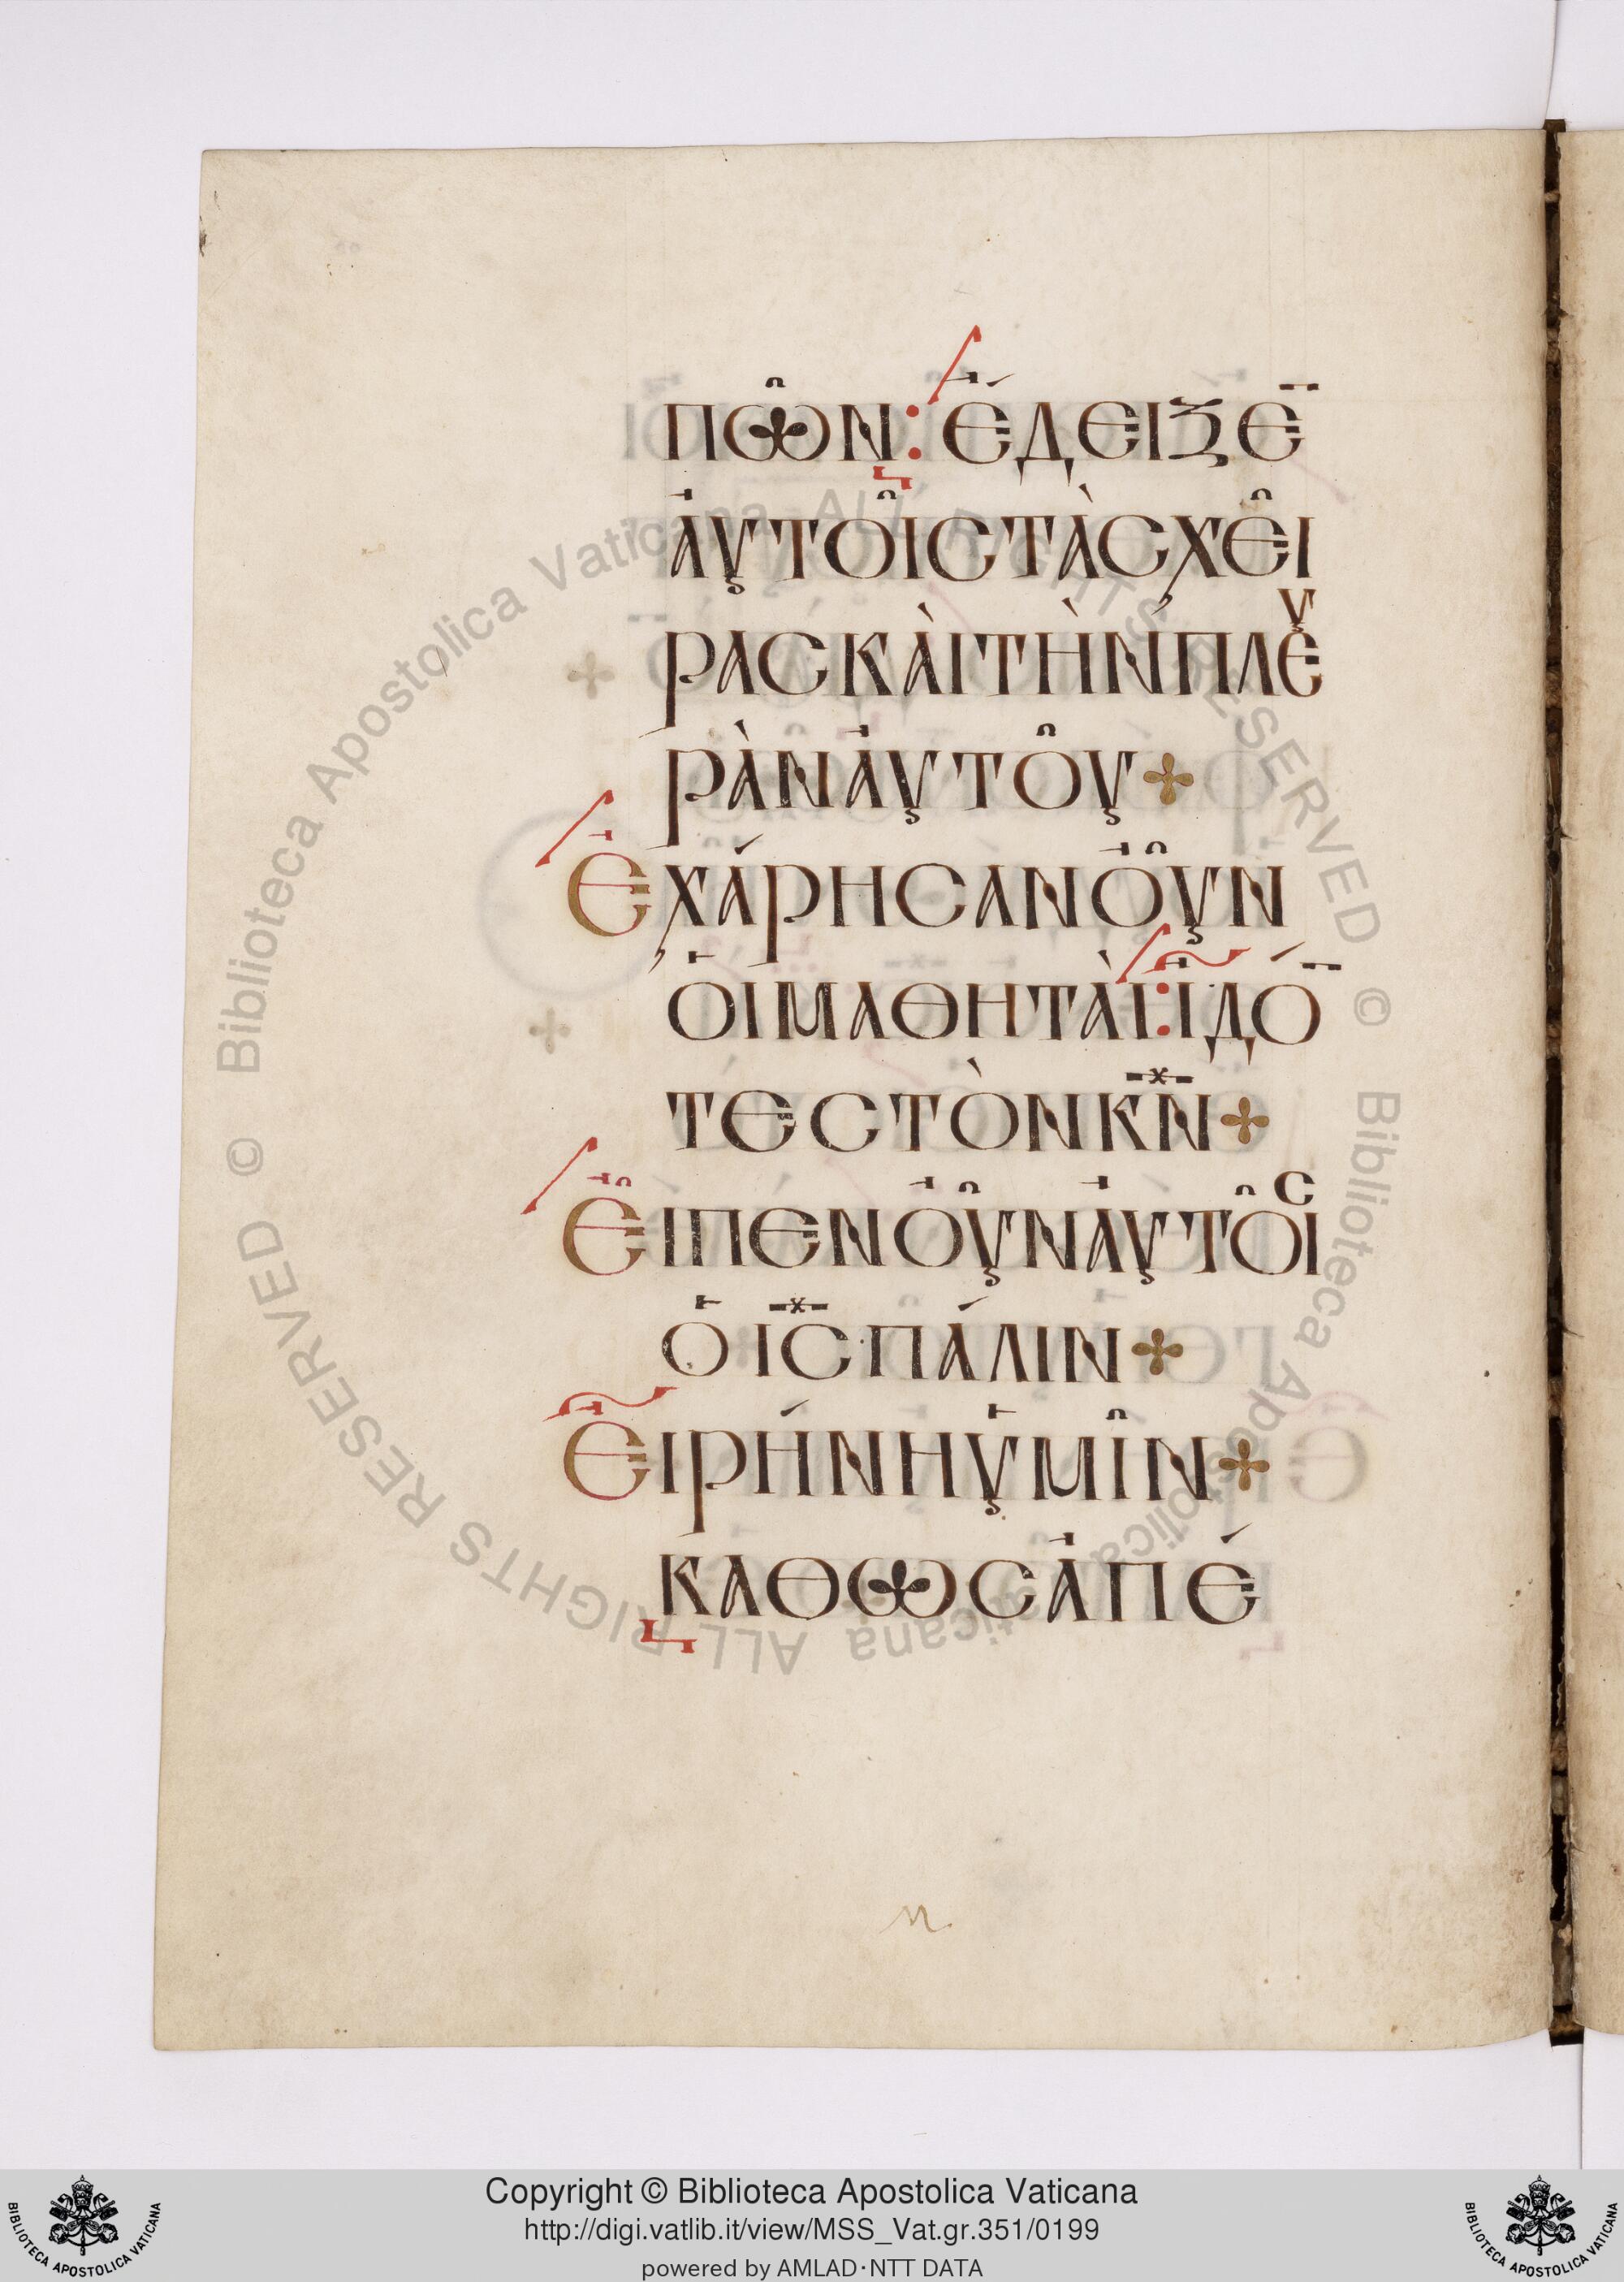 πῶν: ἔδειξε̄
ἀυτοῖςτὰςχεῖ
ραςκὰιτὴνπλευ
ρὰνἀυτοῦ
Ἐχάρησανὀῦν
ὁιμαθητὰι: ἰδό̄
τεςτὸνκ̅ν̅
Ἐ͂ιπενὀῦναυτοῖς
ὁ ι̅ς̅ πάλιν
Ἐιρήνηὑμῖν
καθωςἀπέ
n.
© Biblioteca Apostolica Vaticana ALL RIGHTS RESERVED © Biblioteca Apostolica Vaticana ALL RIGHTS RESERVED
Copyright © Biblioteca Apostolica Vaticana
http://digi.vatlib.it/view/MSS_Vat.gr.351/0199
powered by AMLAD·NTT DATA
BIBLIOTECA APOSTOLICA VATICANA
BIBLIOTECA APOSTOLICA VATICANA